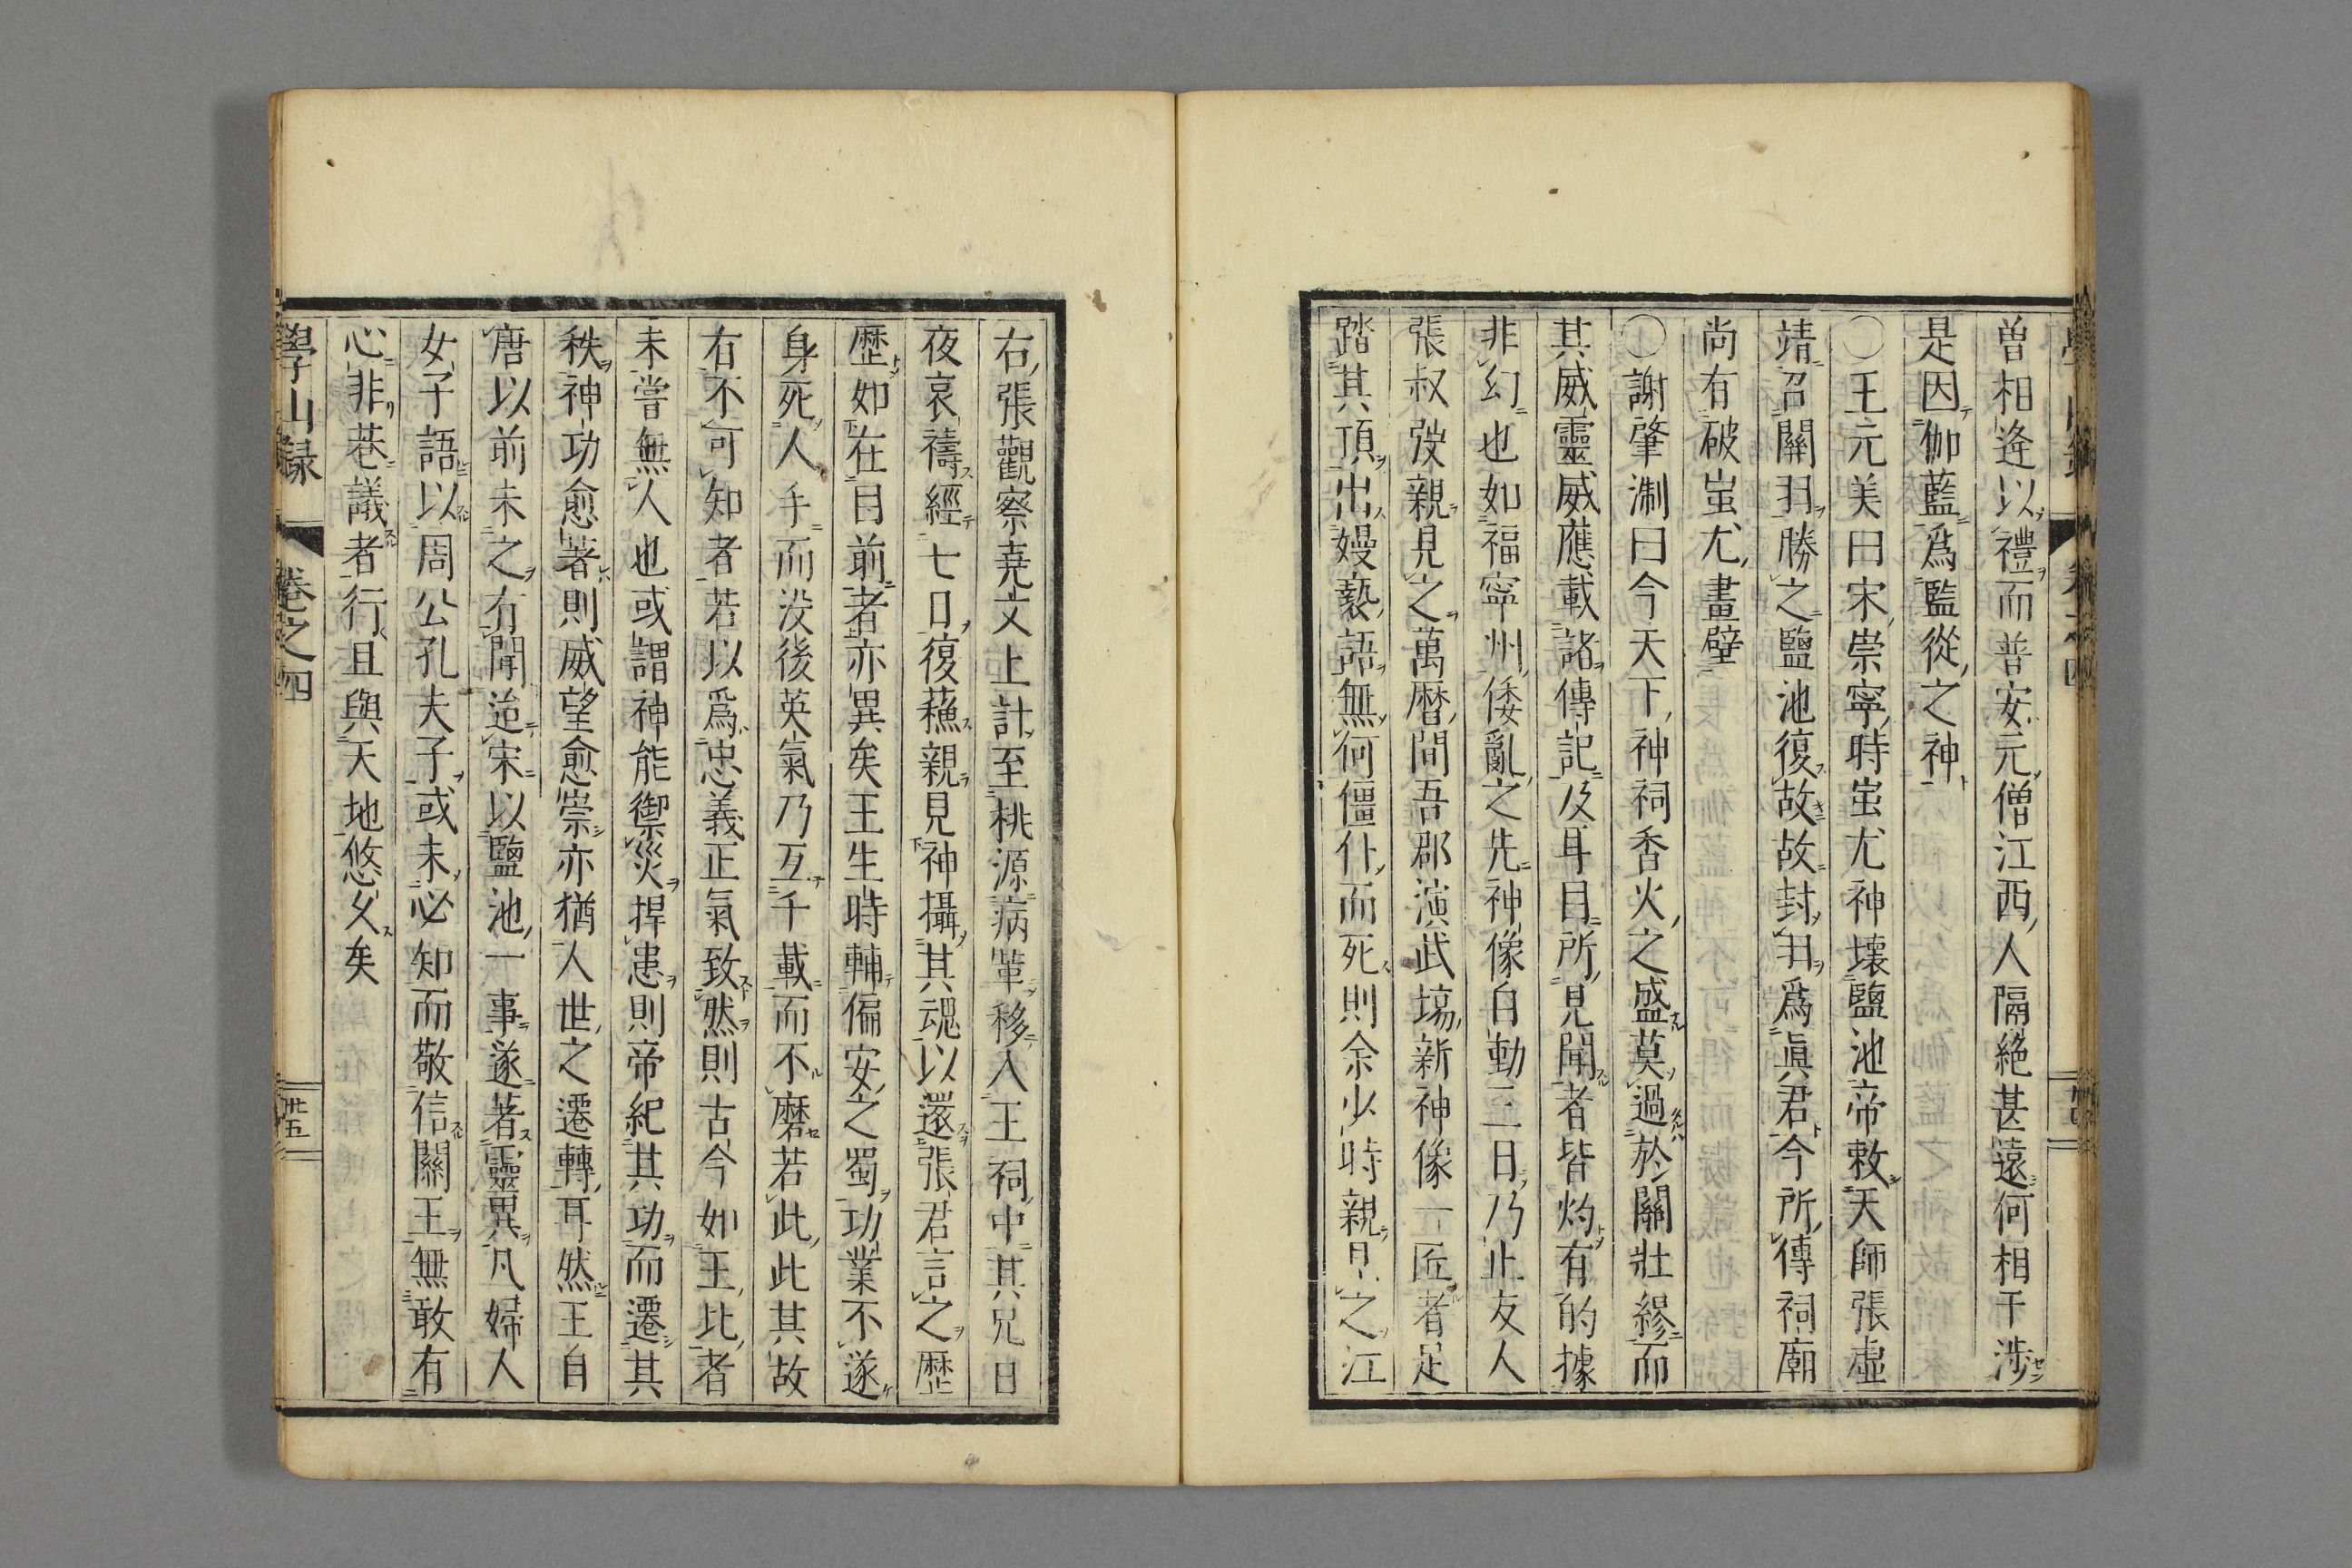 曽相逢以禮而普安元僧江西人隔絶甚遠何相干涉
是因伽藍爲監從之神
〇王元美曰宋崇寧時蚩尤神壊鹽池帝敕天師張虛
靖召關羽勝之鹽池復故故封羽爲眞君今所傳祠廟
尚有破蚩尤畫壁
〇謝肇淛曰今天下神祠香火之盛莫過於關壯繆而
其威靈感應載諸傳記及耳目所見聞者皆灼有的據
非幻也如福寧州倭亂之先神像自動三日乃止友人
張叔弢親見之萬曆間吾郡演武塲新神像一匠者足
踏其頂出嫚褻語無何僵仆而死則余少時親見之江
右張觀察堯文上計至桃源病革移入王祠中其兄日
夜哀禱經七日復蘓親見神攝其魂以還張君言之歴
歴如在目前者亦異矣王生時輔偏安之蜀功業不遂
身死人手而没後英氣乃亙千載而不磨若此此其故
有不可知者若以爲忠義正氣致然則古今如王比者
未嘗無人也或謂神能禦災捍患則帝紀其功而遷其
秩神功愈著則威望愈崇亦猶人世之遷轉耳然王自
唐以前未之有聞迨宋以鹽池一事遂著靈異凡婦人
女子語以周公孔夫子或未必知而敬信關王無敢有
心非巷議者行且與天地悠久矣
學山録 卷之四 卅五